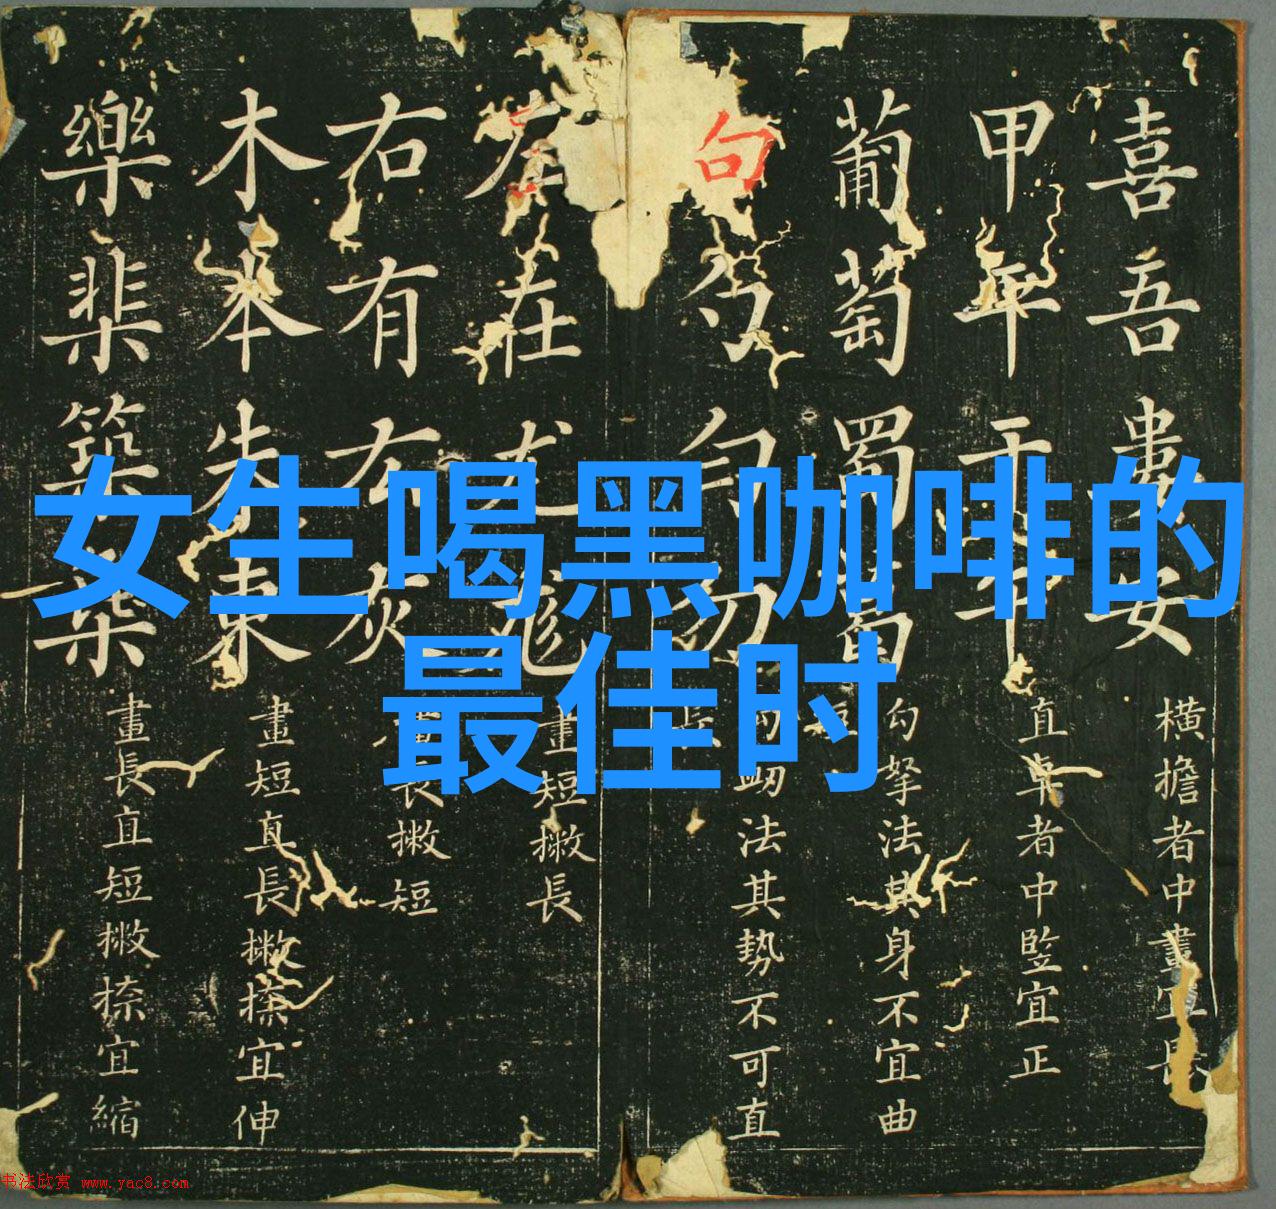 女生喝黑咖啡的
最佳时
喜吾安
橫擔者中畫宜
甲
直者中監宜正
葡萄蜀
勾拏法其身不宜曲
句勺勿
法其勢不可直
在尤
畫短撇長
右有灰
長撇短
木本朱東
畫短直長撇捺宜伸
樂棐築
畫長直短撇捺宜縮
书法欣赏 www.yac8.com